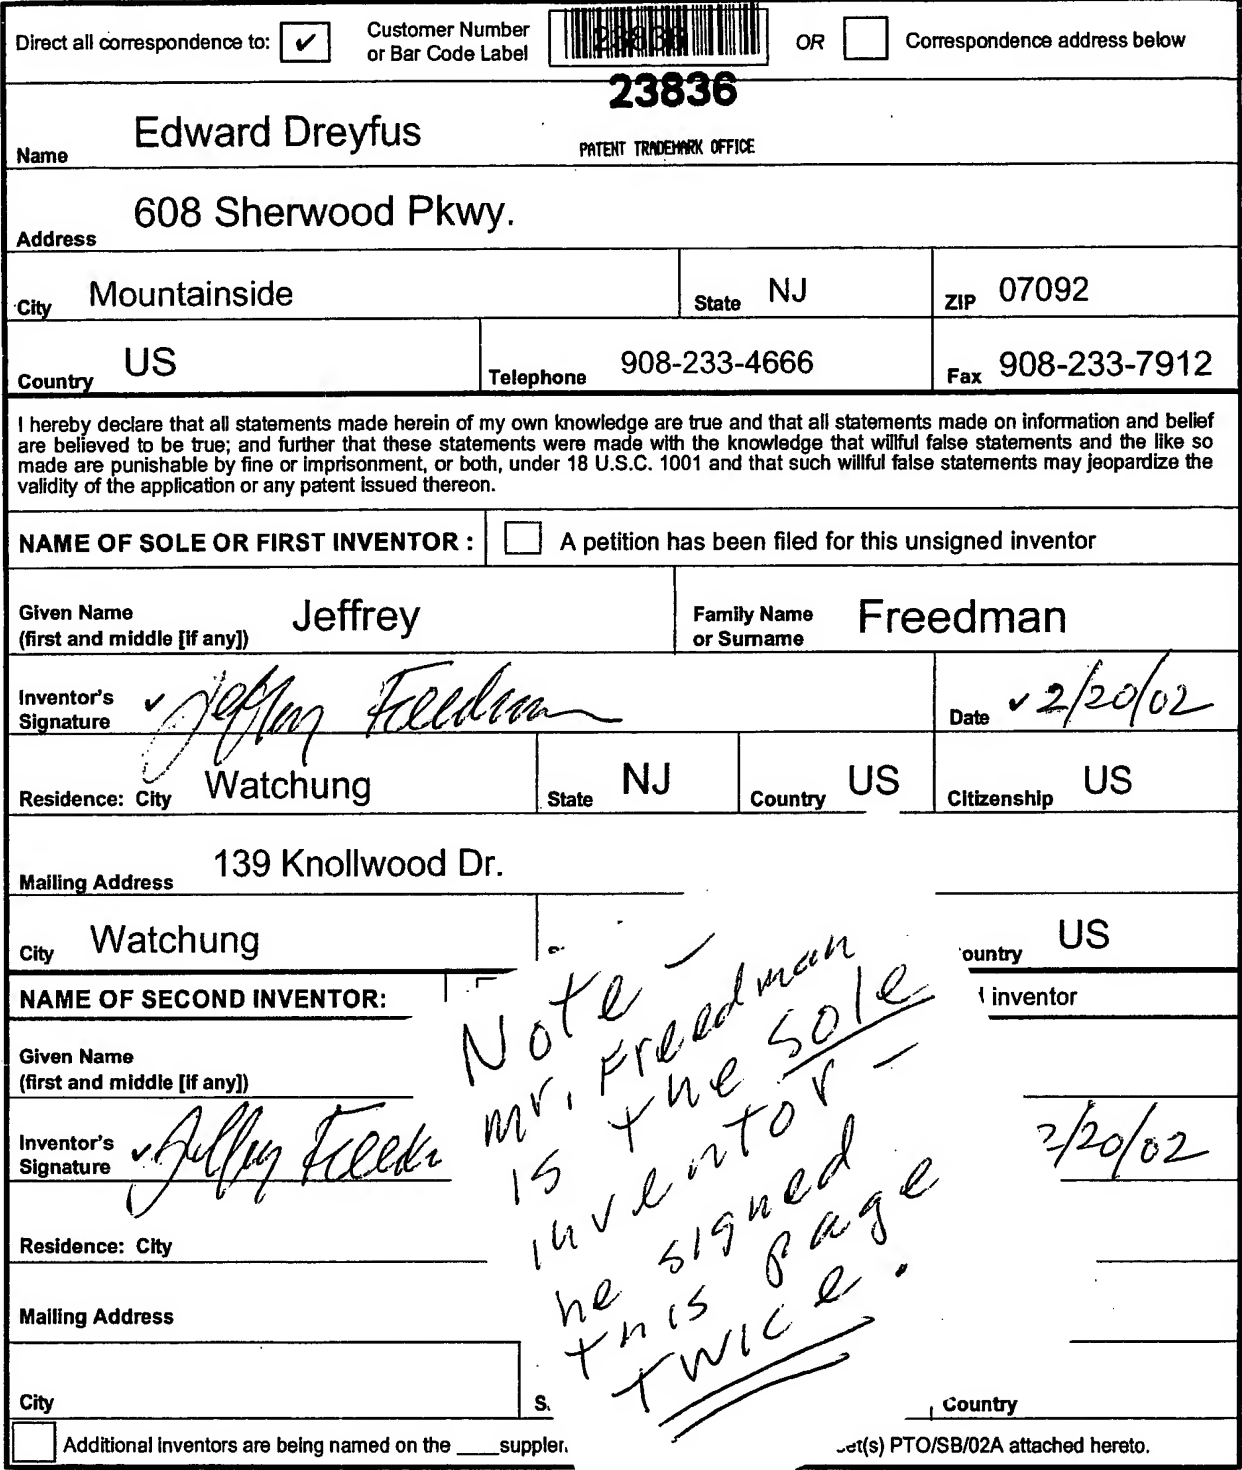 Direct all correspondence to: ✔ Customer Number or Bar Code Label 23836 OR Correspondence address below
23836
PATENT TRADEMARK OFFICE
Name Edward Dreyfus
Address 608 Sherwood Pkwy.
City Mountainside State NJ ZIP 07092
Country US Telephone 908-233-4666 Fax 908-233-7912
I hereby declare that all statements made herein of my own knowledge are true and that all statements made on information and belief
are believed to be true; and further that these statements were made with the knowledge that willful false statements and the like so
made are punishable by fine or imprisonment, or both, under 18 U.S.C. 1001 and that such willful false statements may jeopardize the
validity of the application or any patent issued thereon.
NAME OF SOLE OR FIRST INVENTOR : A petition has been filed for this unsigned inventor
Given Name (first and middle [if any]) Jeffrey Family Name or Surname Freedman
Inventor's Signature ✓ Jeffrey Freedman Date ✓ 2/20/02
Residence: City Watchung State NJ Country US Citizenship US
Mailing Address 139 Knollwood Dr.
City Watchung ountry US
NAME OF SECOND INVENTOR: inventor
Given Name
(first and middle [if any])
Inventor's Signature ✓ Jeffrey Freed 2/20/02
Residence: City
Mailing Address
City S. Country
Additional inventors are being named on the ____suppler. et(s) PTO/SB/02A attached hereto.
Note -
Mr. Freedman
is the sole
inventor -
he signed
this page
TWICE.